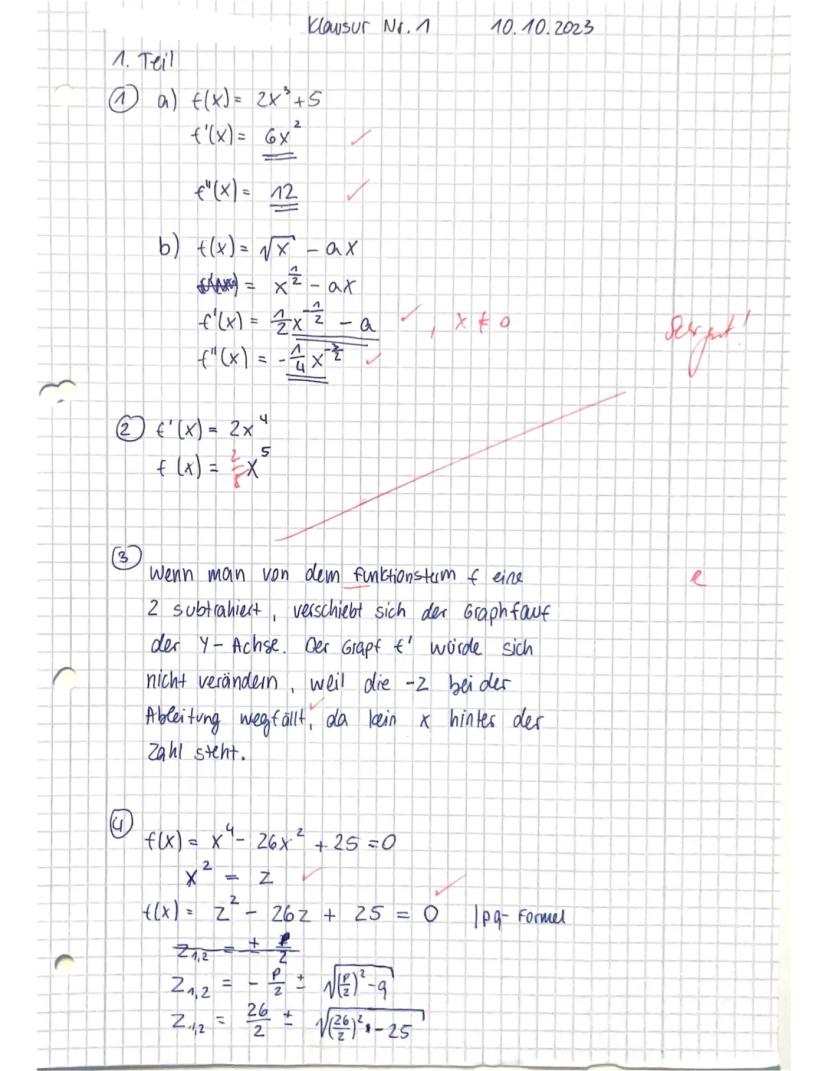 Klausur Nr. 1 10.10.2023
1. Teil
① a) f(x) = 2x³ + 5
f'(x) = 6x² ✓
f"(x) = 12 ✓
b) f(x) = √x - ax
= x^(1/2) - ax
f'(x) = 1/2 x^(-1/2) - a ✓, x ≠ 0
Sehr gut!
f"(x) = -1/4 x^(-3/2) ✓
② f'(x) = 2x⁴
f(x) = 2/5 x⁵
③
Wenn man von dem funktionsterm f eine
2 subtrahiert, verschiebt sich der Graph f auf
der y-Achse. Der Grapf f' würde sich
nicht verändern, weil die -2 bei der
Ableitung wegfällt, da kein x hinter der
Zahl steht.
④
f(x) = x⁴ - 26x² + 25 = 0
x² = z ✓
f(x) = z² - 26z + 25 = 0 ✓ |pq-Formel
z1,2 = + p/2
z1,2 = - p/2 ± √((p/2)² - q)
z1,2 = 26/2 ± √((26/2)² - 25)